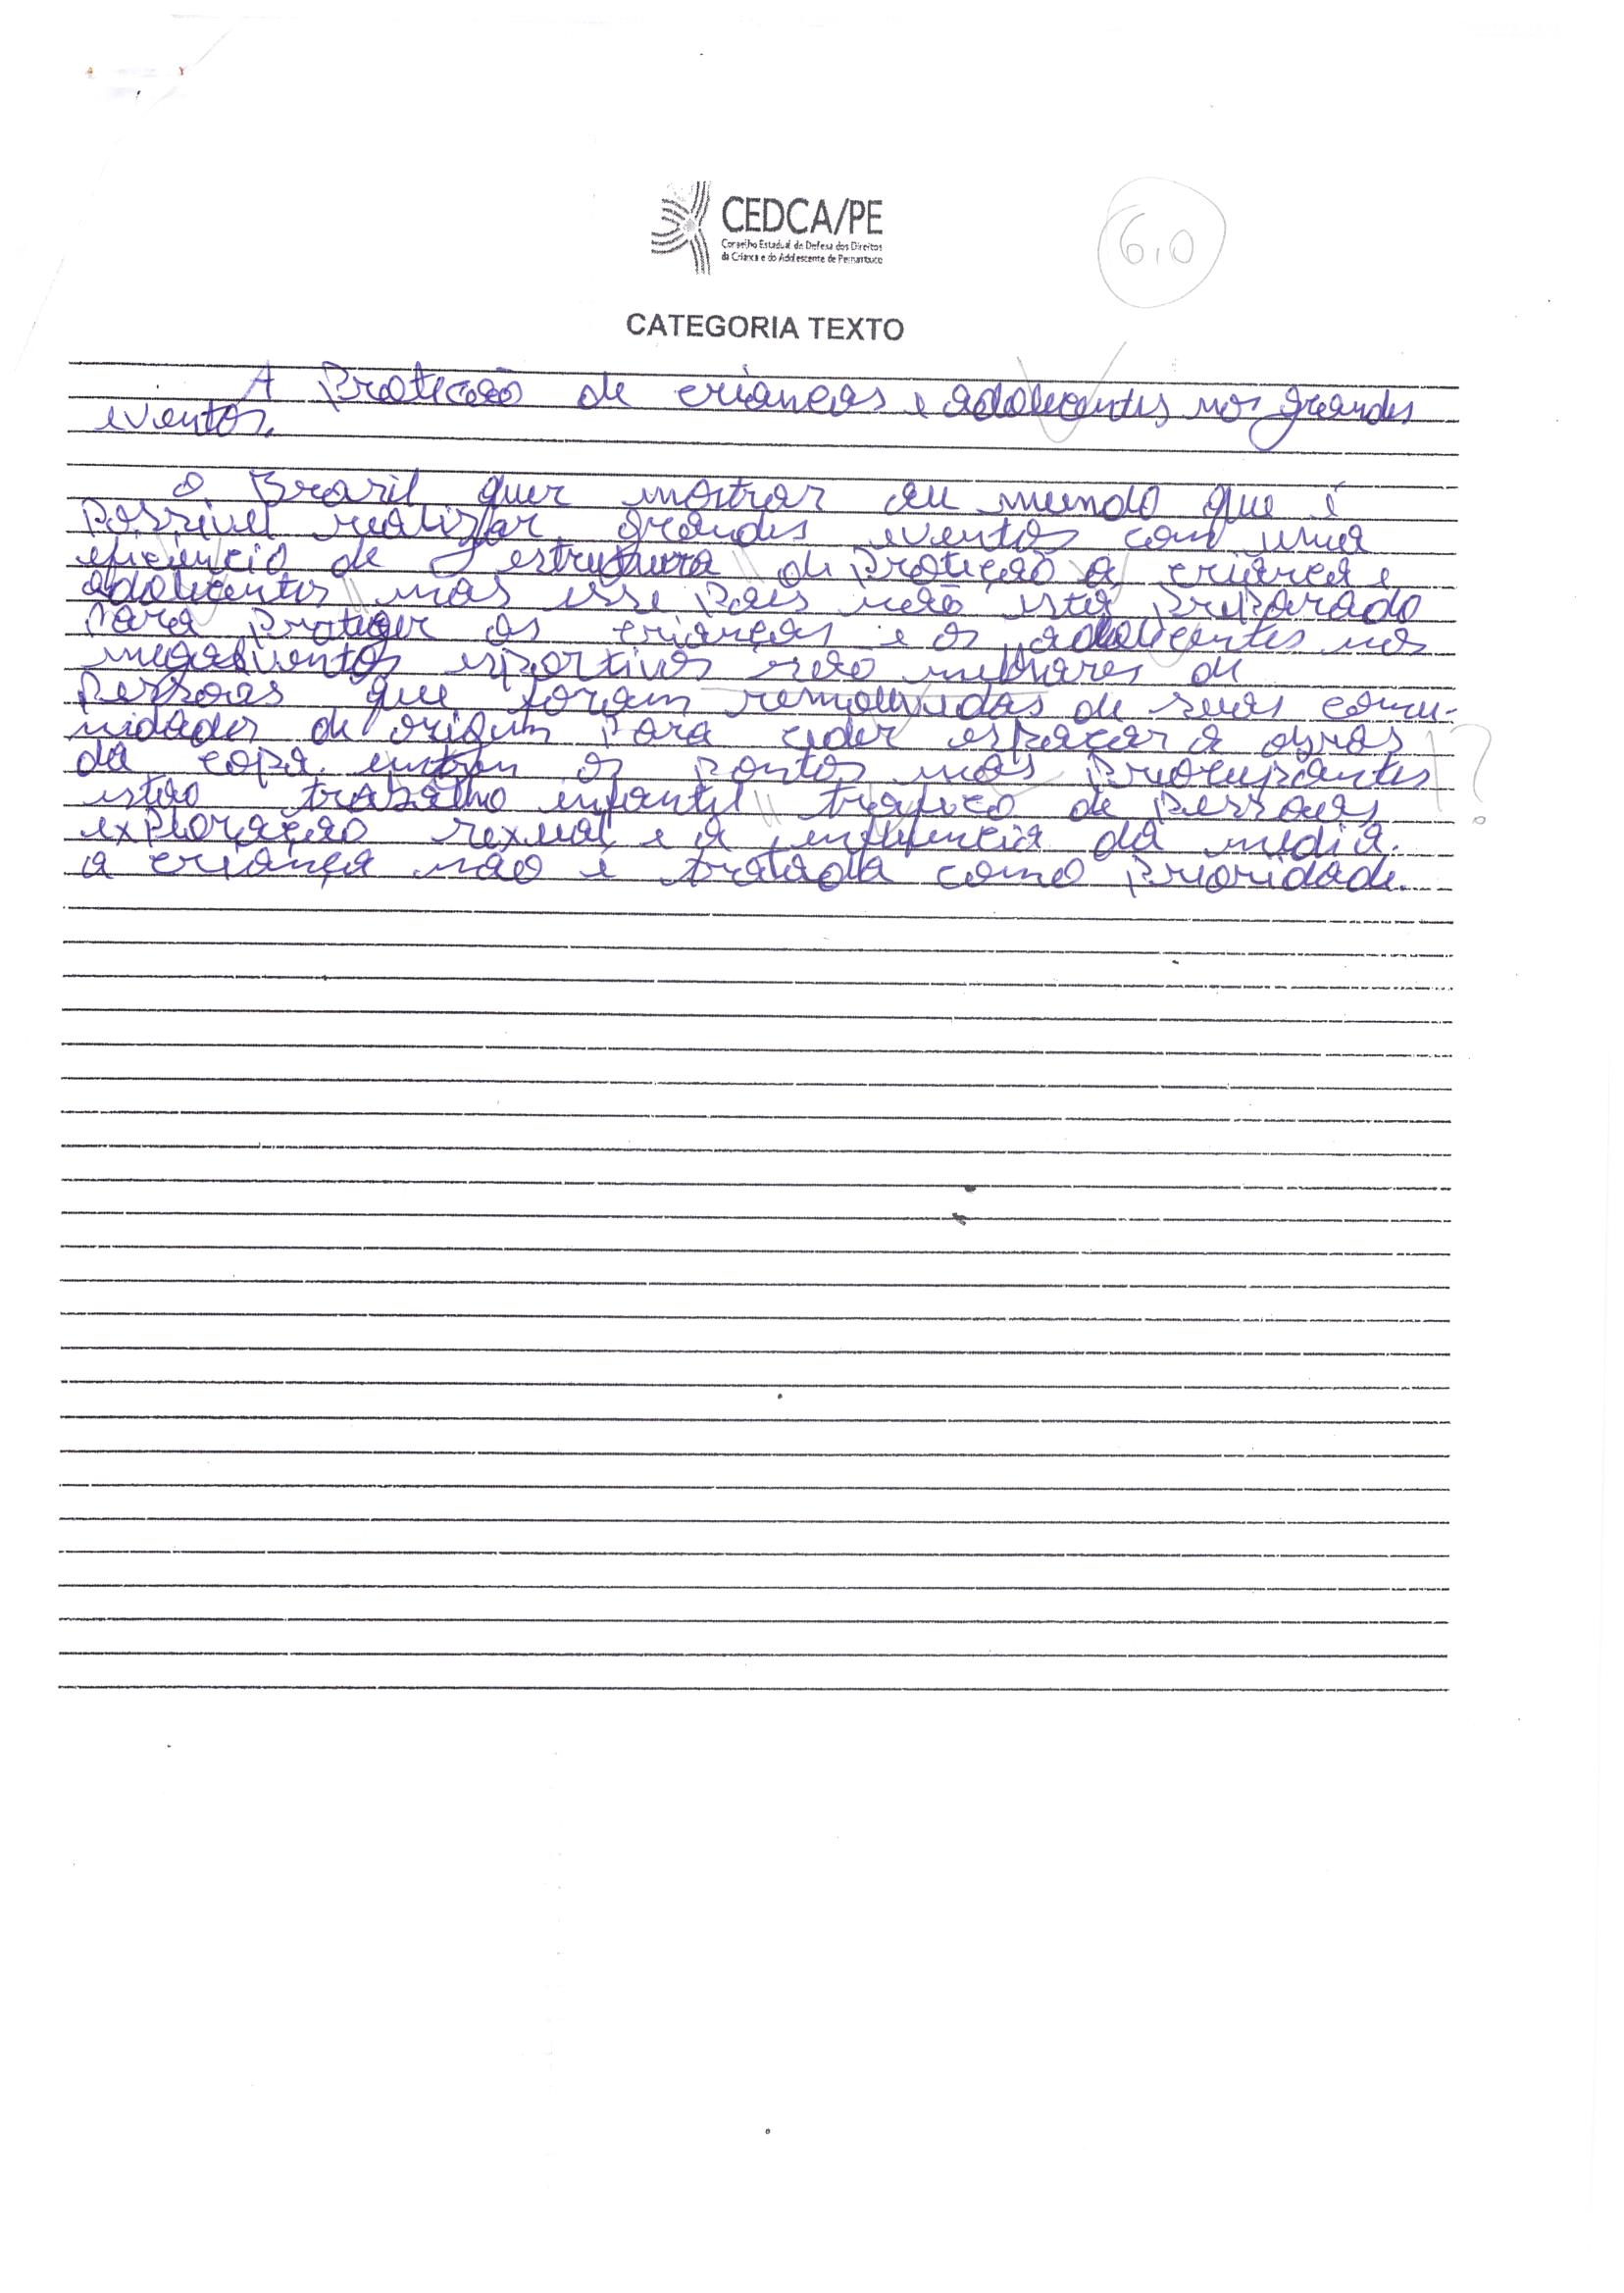 CEDCA/PE
Conselho Estadual de Defesa dos Direitos
da Criança e do Adolescente de Pernambuco
6,0
CATEGORIA TEXTO
A Proteção de crianças e adolecentes nos grandes
eventos.
O Brasil quer mostrar au mundo que é
Possivel realizar grandes eventos com uma
eficiencio de estrutura de Proteção a criança e
adolecentes mas esse Pais não está preparado
Para Proteger as crianças e os adolecentes nos
megaeventos esportivos são milhares de
Pessoas que foram removidas de suas comu-
nidades de origem Para ceder espaçar a obras
da copa. entren os pontos mas Preocupantes
estão trabalho infantil trafico de Pessoas
exploração sexual e a influencia da midia.
a criança não e tratada como Prioridade.
!?